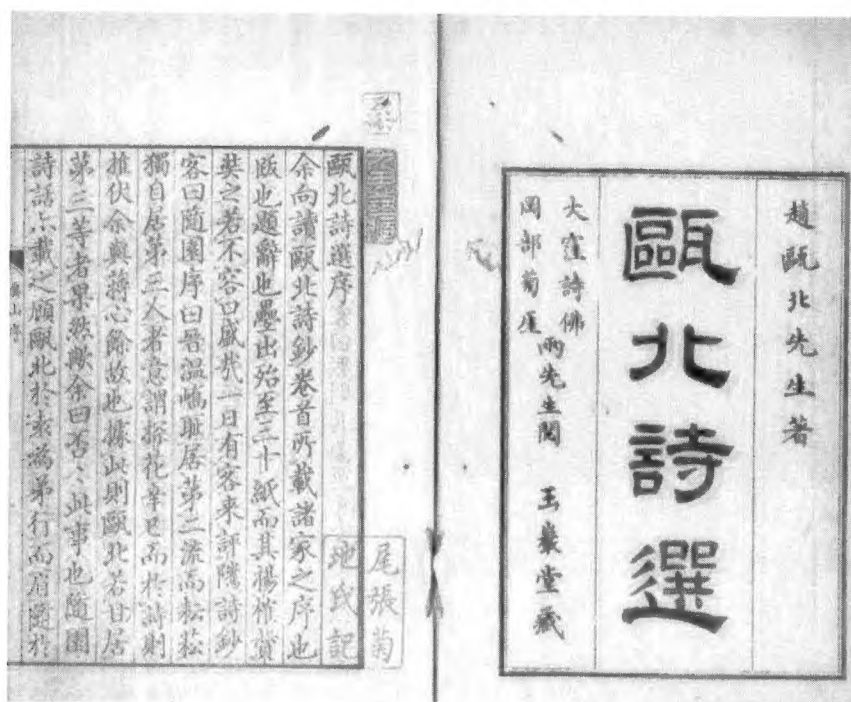 趙甌北先生著
甌北詩選
大窪詩佛
岡部菊厓
兩先生閱
玉巖堂藏
尾張菊
地氏記
甌北詩選序
余向讀甌北詩鈔卷首所載諸家之序也
版也題辭也疊出殆至三十紙而其揚搉贊
奘之若不容口盛哉一日有客来評隲詩鈔
客曰隨園序曰晉溫嶠耻居第二流而耘菘
獨自居第三人者意謂探花辛巳而於詩則
推伏余與蔣心餘故也據此則甌北若甘居
第三等者果然歟余曰否〻此事也隨園
詩話亦載之顧甌北於袁為弟行而肩隨於